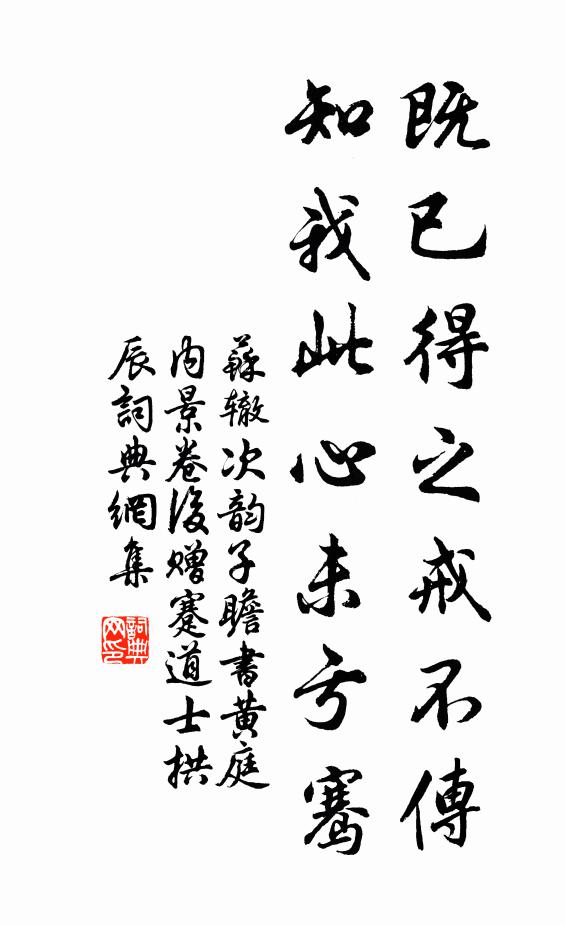 既已得之戒不傳
知我此心未亏骞
蘇辙次韵子瞻書黄庭
内景卷後赠蹇道士拱
辰詞典網集
詞典
网印